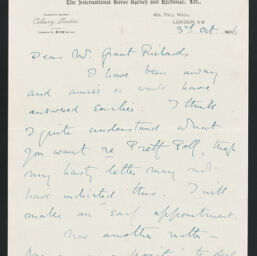 The International Horse Agency and Exchange, Ltd.,
Cobury, London
PALL MALL,
LONDON S.W.
3rd Oct.
Dear Mr. Grant Richards
I have been away
and or would have
answered earlier. I think
I quite understand what
you want re Prett Poll, though
my hasty letter may not
have indicated this. I will
make an early appointment.
Now another matter –